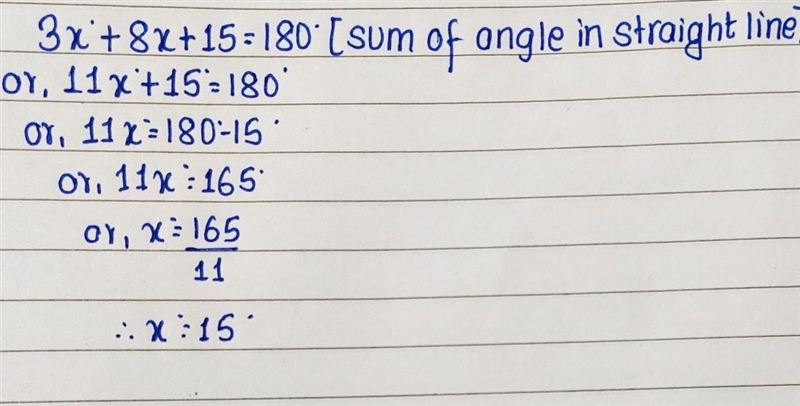 3x° + 8x + 15 = 180° [sum of angle in straight line]
or, 11x° + 15° = 180°
or, 11x° = 180° - 15°
or, 11x° = 165°
or, x° = 165
11
∴ x° = 15°